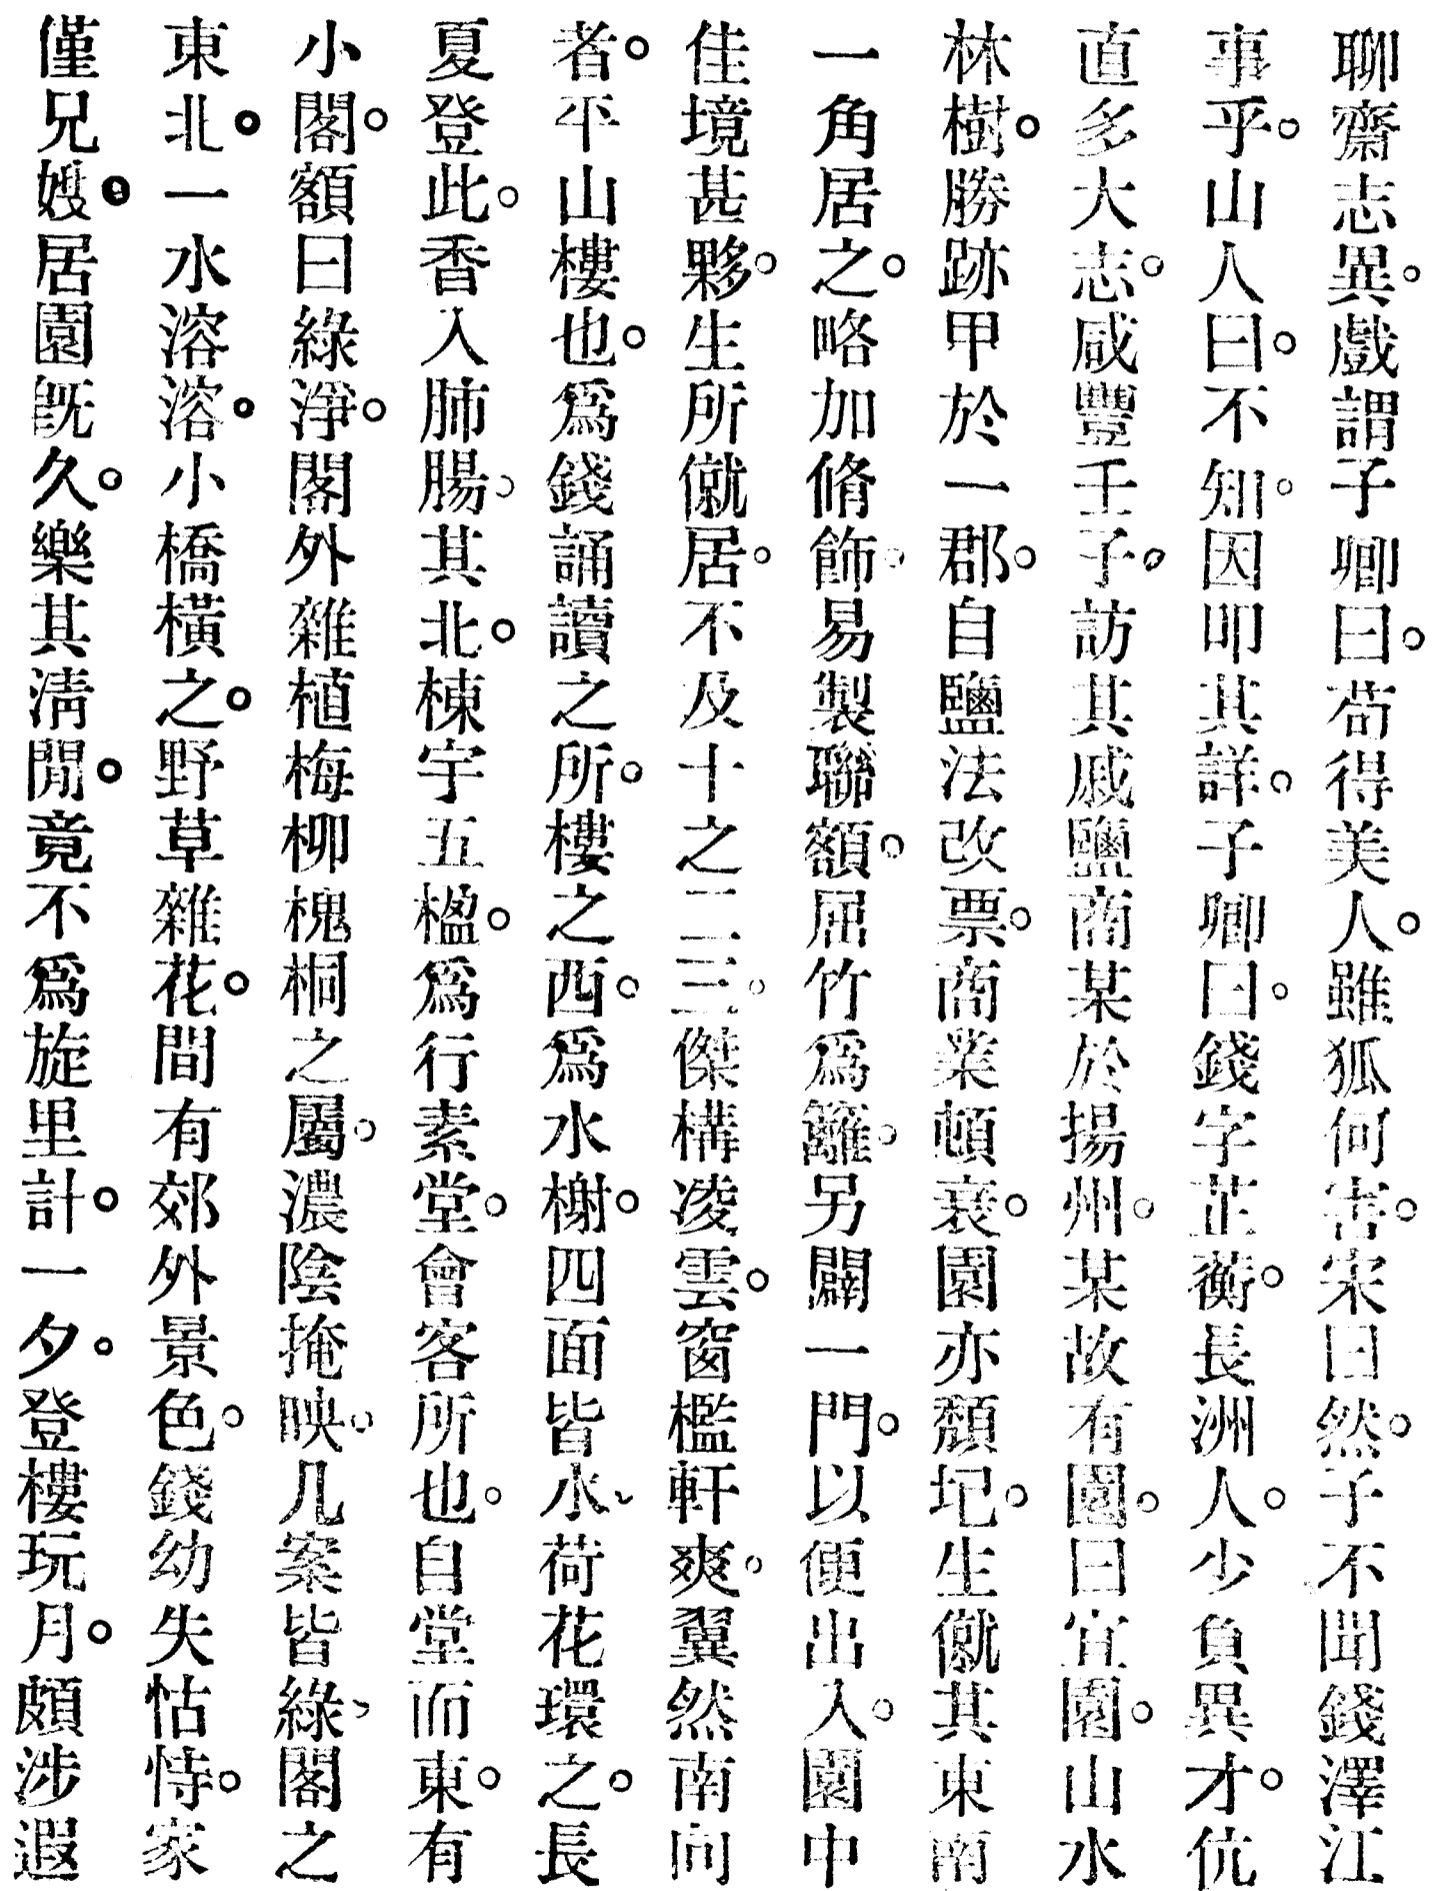 聊齋志異。戲謂子卿曰。苟得美人。雖狐何害。宋曰然。子不聞錢澤江
事乎。山人曰。不知。因叩其詳。子卿曰。錢字芷蘅。長洲人。少負異才。伉
直多大志。咸豐壬子。訪其戚鹽商某於揚州。某故有園。曰宜園。山水
林樹。勝跡甲於一郡。自鹽法改票。商業頓衰。園亦頹圯。生僦其東南
一角居之。略加脩飾。易製聯額。屈竹爲籬。另闢一門。以便出入。園中
佳境甚夥。生所僦居。不及十之二三。傑構凌雲。窗檻軒爽。翼然南向
者。平山樓也。爲錢誦讀之所。樓之西。爲水榭。四面皆水、荷花環之。長
夏登此。香入肺腸。其北。棟宇五楹。爲行素堂。會客所也。自堂而東。有
小閣。額曰綠淨。閣外雜植梅柳槐桐之屬。濃陰掩映。几案皆綠、閣之
東北。一水溶溶。小橋橫之。野草雜花。間有郊外景色。錢幼失怙恃。家
僅兄嫂。居園旣久。樂其淸閒。竟不爲旋里計。一夕。登樓玩月。頗涉遐